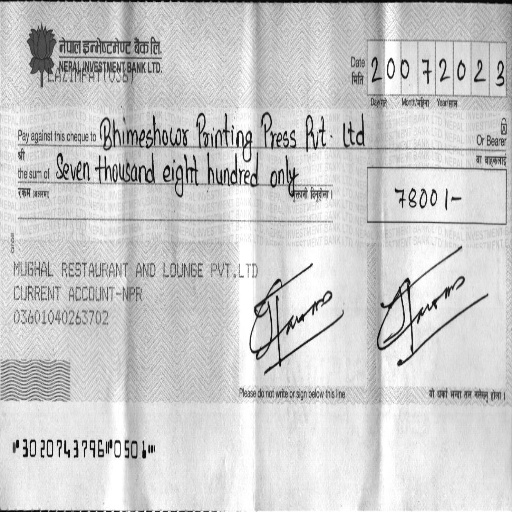 नेपाल इन्भेष्टमेण्ट बैंक लि.
NEPAL INVESTMENT BANK LTD.
LAZIMPAT(036)
Date 20072023
मिति
Day/गते Month/महिना Year/साल
Pay against this cheque to Bhimeshowor Printing Press Pvt. Ltd Or Bearer
श्री वा वाहकलाई
the sum of Seven thousand eight hundred only
रकम (अक्षरमा)
78001-
MUGHAL RESTAURANT AND LOUNGE PVT.LTD
CURRENT ACCOUNT-NPR
03601040263702
Please do not write or sign below this line
यो धर्का भन्दा तल नलेख्नु होला।
⑈3020743796⑈0501⑈